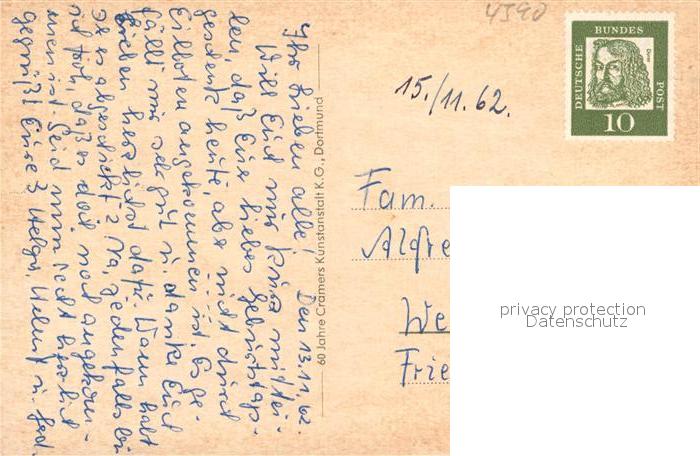 Den 13.11.62.
Ihr Lieben alle!
Will Euch nur kurz mittei-
len, daß Euer liebes Geburtstags-
gesdenk heute, aber nicht durch
Eilboten angekommen ist. Es ge-
fällt mir sehr gut u. danke Euch
Lieben herzlichst dafür. Wann habt
Ihr es abgeschickt? Na, jedenfalls bin
ich froh, daß es doch noch angekom-
men ist. Seid nun recht herzlich
gegrüßt Eure 3 Helga, Helmut u.
60 Jahre Cramers Kunstanstalt K.G., Dortmund
4590
15./11.62.
DEUTSCHE BUNDES POST
Dürer
10
Fam.
Alfre
We
Frie
privacy protection
Datenschutz